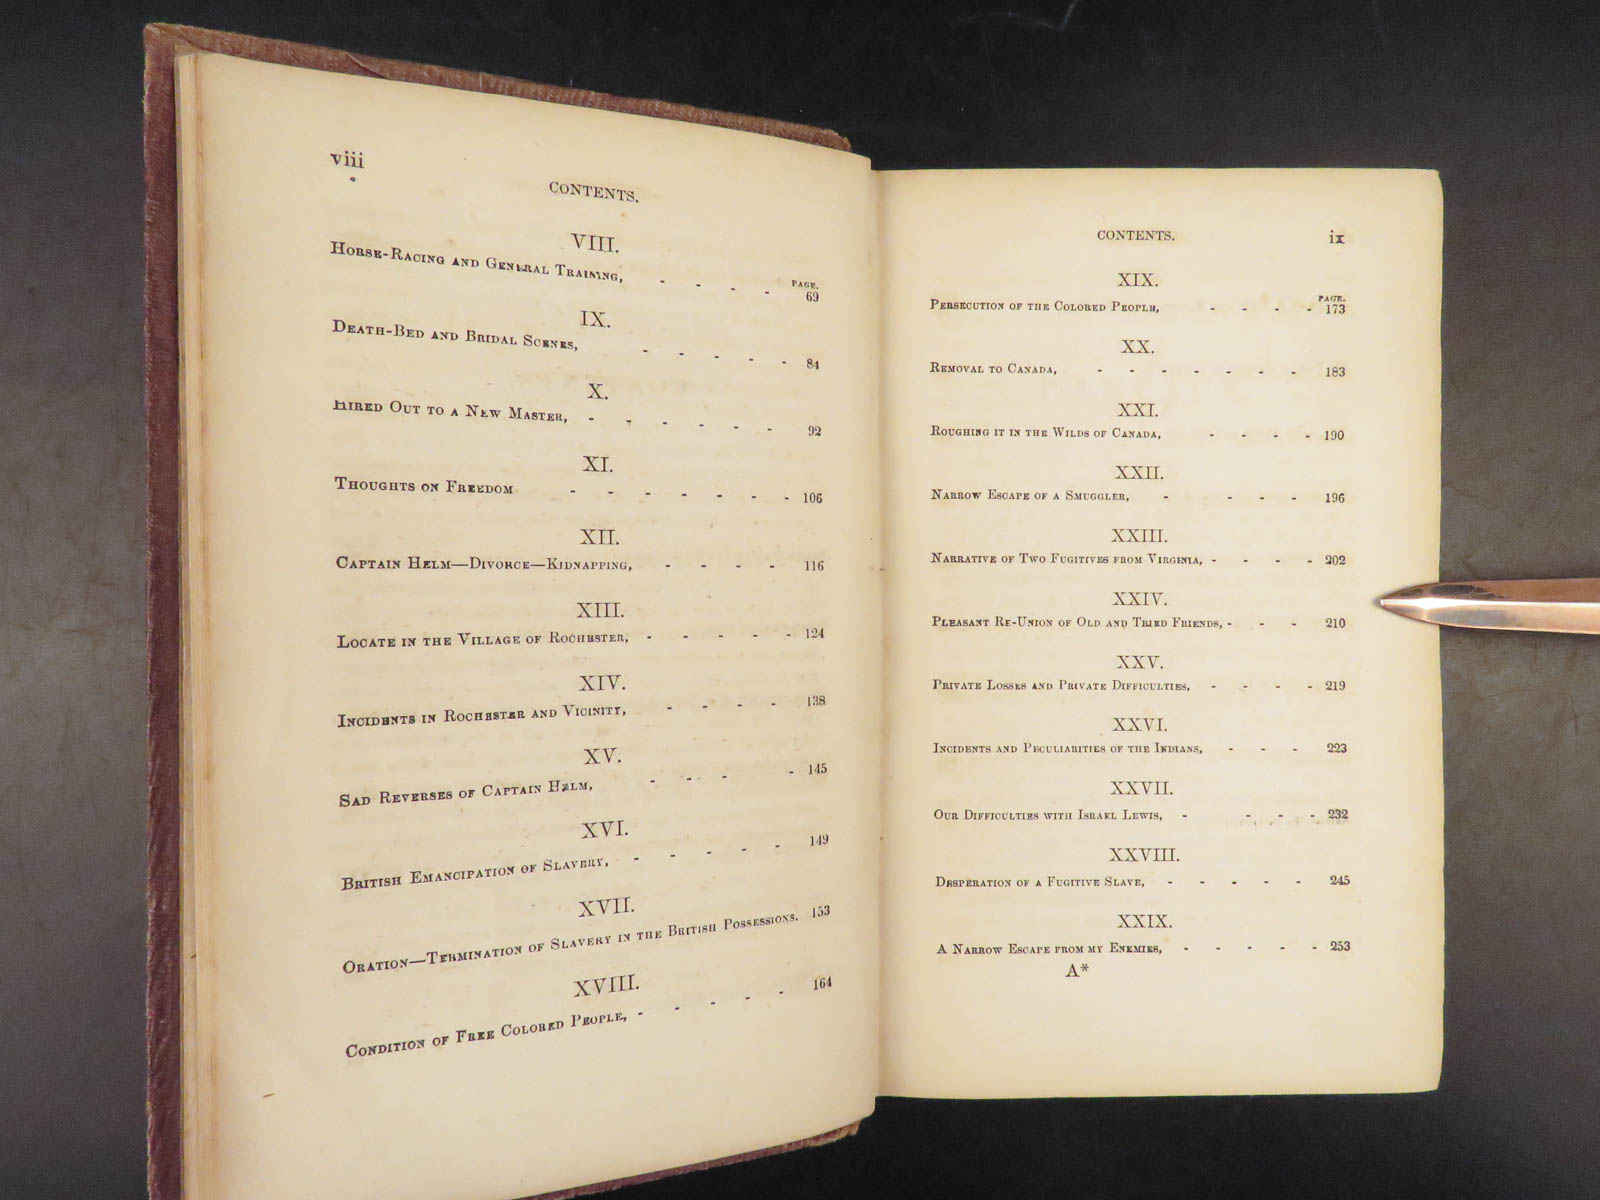 viii
CONTENTS.
VIII.
PAGE.
Horse-Racing and General Training, - - - - 69
IX.
Death-Bed and Bridal Scenes, - - - - - 84
X.
Hired Out to a New Master, - - - - - - 92
XI.
Thoughts on Freedom - - - - - - - 106
XII.
Captain Helm—Divorce—Kidnapping, - - - - 116
XIII.
Locate in the Village of Rochester, - - - - - 124
XIV.
Incidents in Rochester and Vicinity, - - - - 138
XV.
Sad Reverses of Captain Helm, - - - - 145
XVI.
British Emancipation of Slavery, - - - - - 149
XVII.
Oration—Termination of Slavery in the British Possessions. 153
XVIII.
Condition of Free Colored People, - - - - - 164
CONTENTS. ix
XIX.
PAGE.
Persecution of the Colored People, - - - - 173
XX.
Removal to Canada, - - - - - - - 183
XXI.
Roughing it in the Wilds of Canada, - - - - 190
XXII.
Narrow Escape of a Smuggler, - - - - 196
XXIII.
Narrative of Two Fugitives from Virginia, - - - - 202
XXIV.
Pleasant Re-Union of Old and Tried Friends, - - - 210
XXV.
Private Losses and Private Difficulties, - - - - 219
XXVI.
Incidents and Peculiarities of the Indians, - - - 223
XXVII.
Our Difficulties with Israel Lewis, - - - - 232
XXVIII.
Desperation of a Fugitive Slave, - - - - - 245
XXIX.
A Narrow Escape from my Enemies, - - - - - 253
A*